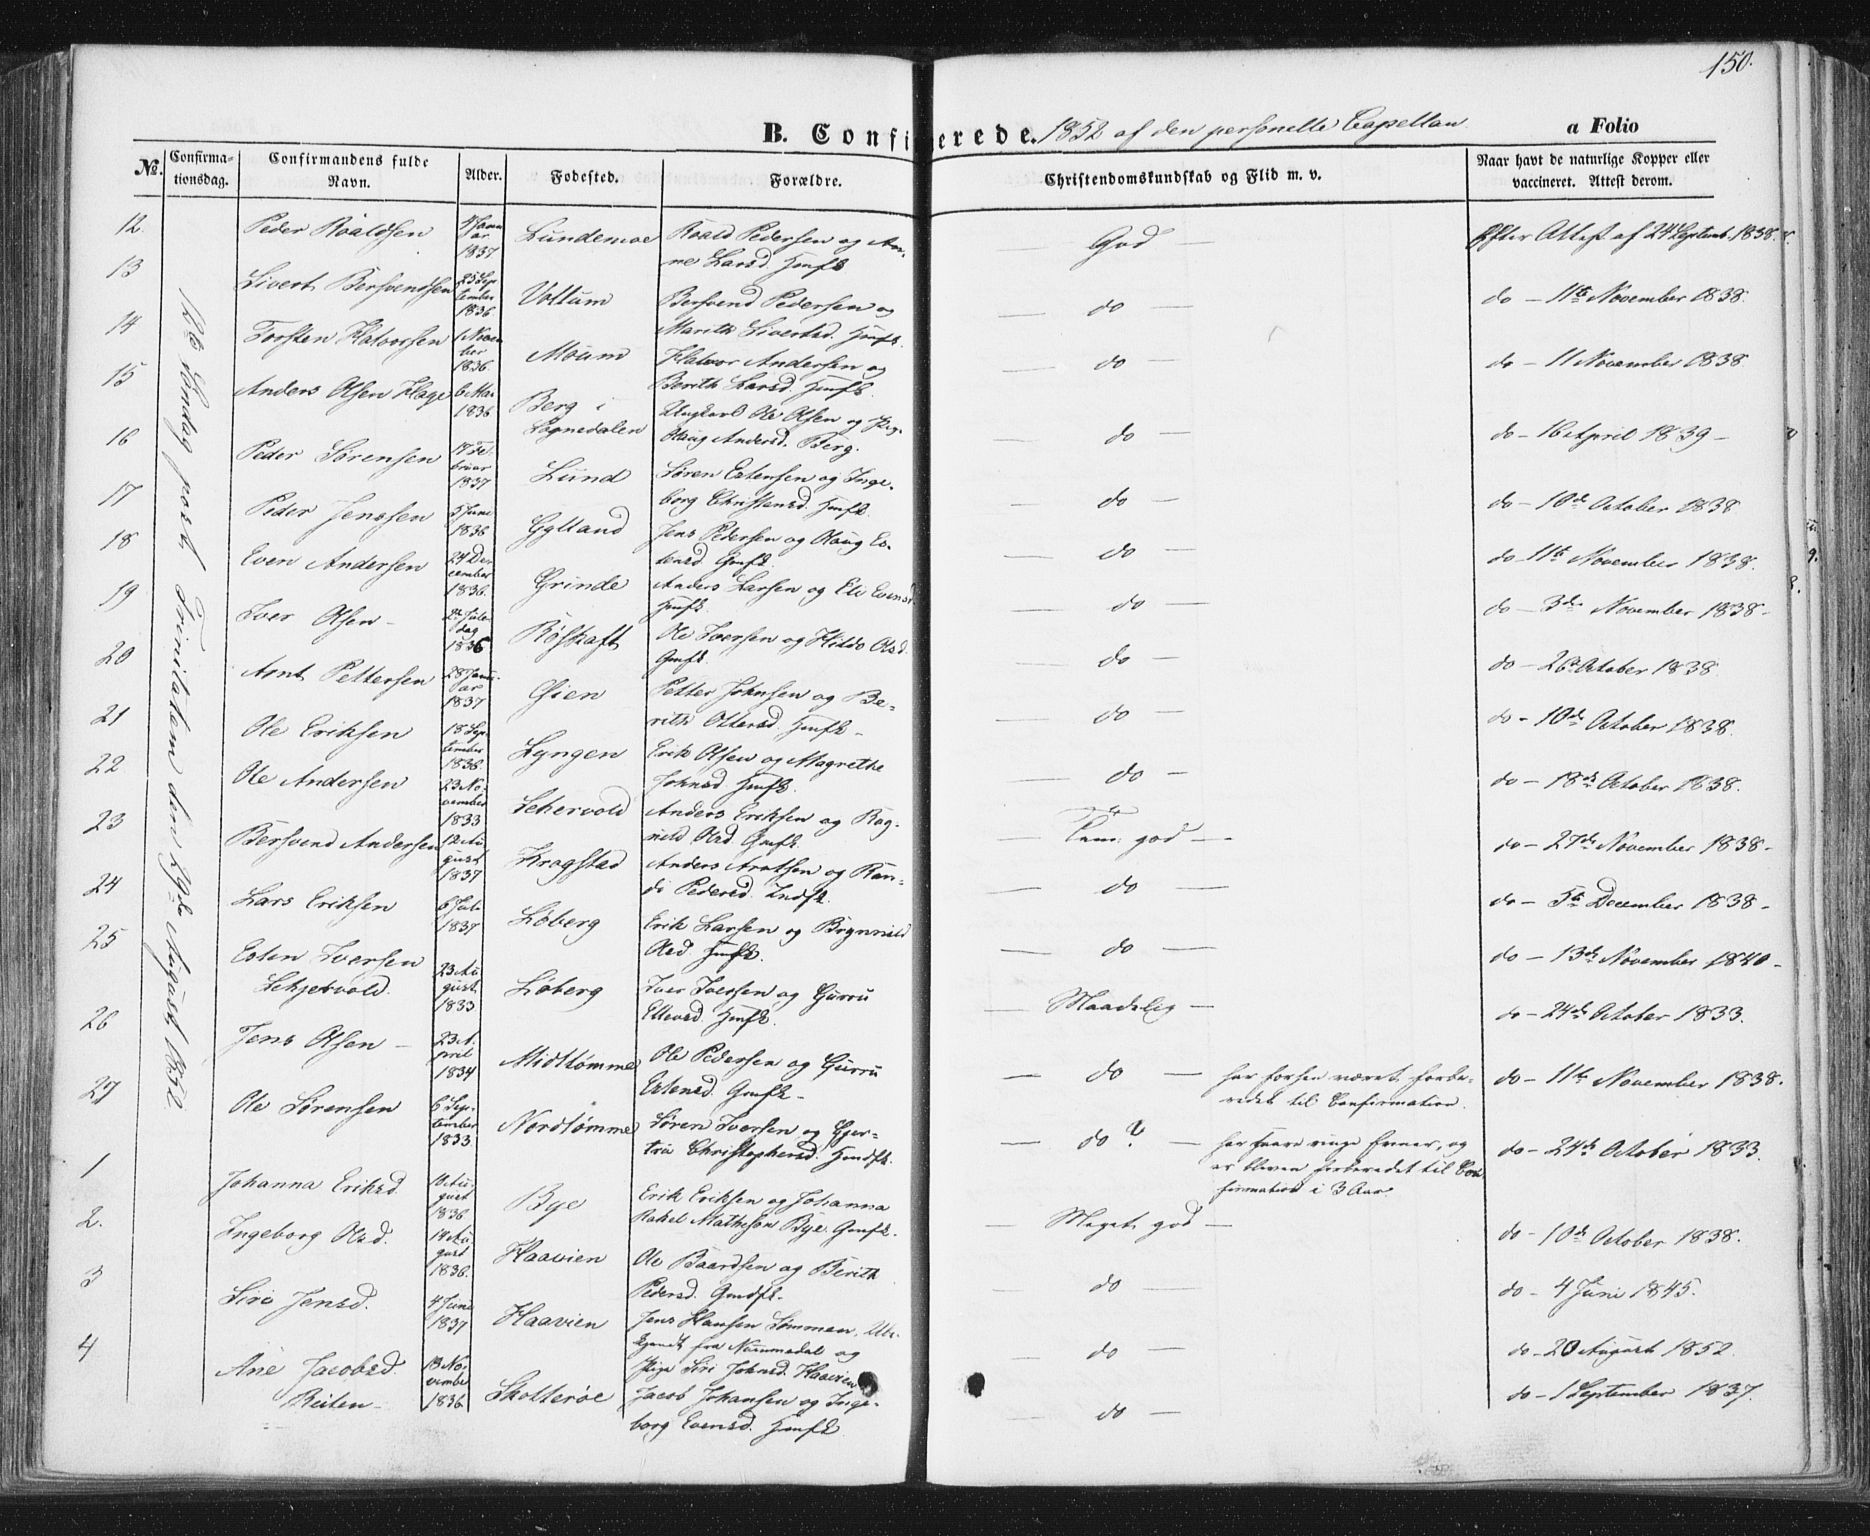 150.
B. Confirmerede. 1852 af den personelle Capellan
a Folio
No. Confirmationsdag. Confirmandens fulde Navn. Alder. Fødested. Forældre. Christendomskundskab og Flid m. v. Naar havt de naturlige Kopper eller vaccineret. Attest derom.
Søndag post Trinitatem den 29de August 1852
12. Peder Roaldsen 1837 Lundemoe Roald Pedersen og Anne Larsd. Hmfk — God — Efter Attest af 24 Septemb. 1838.
13 Sivert Bersvendsen 25 September 1836 Voltum Bersvend Pedersen og Marith Sivertsd. Hmfk. — do — do — 11te November 1838.
14 Torsten Halvorsen 1 November 1836. Moum Halvor Andersen og Berith Larsd. Hmfk. — do — do — 11 November 1838
15 Anders Olsen Hage 6 Mai 1836 Berg i Sognedalen Ungkarl Ole Olsen og Pig. Olaug Andersd. Berg. — do — do — 16 April 1839 —
16 Peder Sørensen Februar 1837 Lund Søren Estensen og Ingeborg Christensd. Hmfk. — do — do — 10de October 1838.
17 Peder Jensen 5 Juni 1836. Gylland Jens Pedersen og Olaug Estensd. Gmfk. — do — do — 11te November 1838.
18 Even Andersen 24 December 1836. Grinde Anders Larsen og Eli Evensd. Hmfk. — do — do — 3de November 1838 —
19 Iver Olsen — 2den Juledag 1836 Røskaft Ole Iversen og Hildo Olsd. Gmfk. — do — do — 26 October 1838
20 Arnt Pettersen 28 Januar 1837 Øien Petter Johnsen og Berith Ottersd. Hmfk — — do — do — 10de October 1838.
21 Ole Eriksen 18 September 1836. Lyngen Erik Olsen og Magrethe Johnsd Hmfk. — do — do — 18de October 1838.
22 Ole Andersen 23 November 1833 Schervold Anders Eriksen og Ragnild Olsd. Gmfk. — Tem. god — do — 27de November 1838 —
23 Bersvend Andersen 12 August 1837 Kragstad Anders Arntsen og Randi Pedersd. Indfk. — do — do — 5te December 1838 —
24 Lars Eriksen 6 Juli 1837 Løberg Erik Larsen og Brynnild Olsd. Hmfk. — do — do — 13de November 1840 —
25 Esten Iversen Schjetvold. 23 August 1833 Løberg Iver Iversen og Gurru Ellevsd. Hmfk. — Maadelig — do — 24de October 1833.
26 Jens Olsen — 23 April 1834 Midttømme Ole Pedersen og Gurru Estensd. Gmfk — — do — har forhen været forberedet til Confirmation. do — 11te November 1838.
27 Ole Sørensen 6 September 1833 Nordtømme Søren Iversen og Gjertru Christophersd. Hmdfk. — do? — har svare ringe Evner, og er bleven forberedet til Confirmation i 3 Aar. do — 24de October 1833.
1 Johanna Eriksd. August 1836 Bye Erik Eriksen og Johanna Rakel Matheson Bye. Gmfk. — Meget god — do — 10de October 1838.
2. Ingeborg Olsd. 14 August 1836. Haavien Ole Baardsen og Berith Pedersd. Gmdfk. — do — do — 4 Juni 1845.
3 Siri Jensd. 4 Juni 1837 Haavien Jens Hansen Sømmen, fra Nummedal og Pige Siri Johnsd. Haavien — do — do — 20 August 1852
4 Ane Jacobsd. Reiten — 13 November 1836 Skotterøe Jacob Johansen og Ingeborg Evensd. Hmfk. — do — do — 1 September 1837.